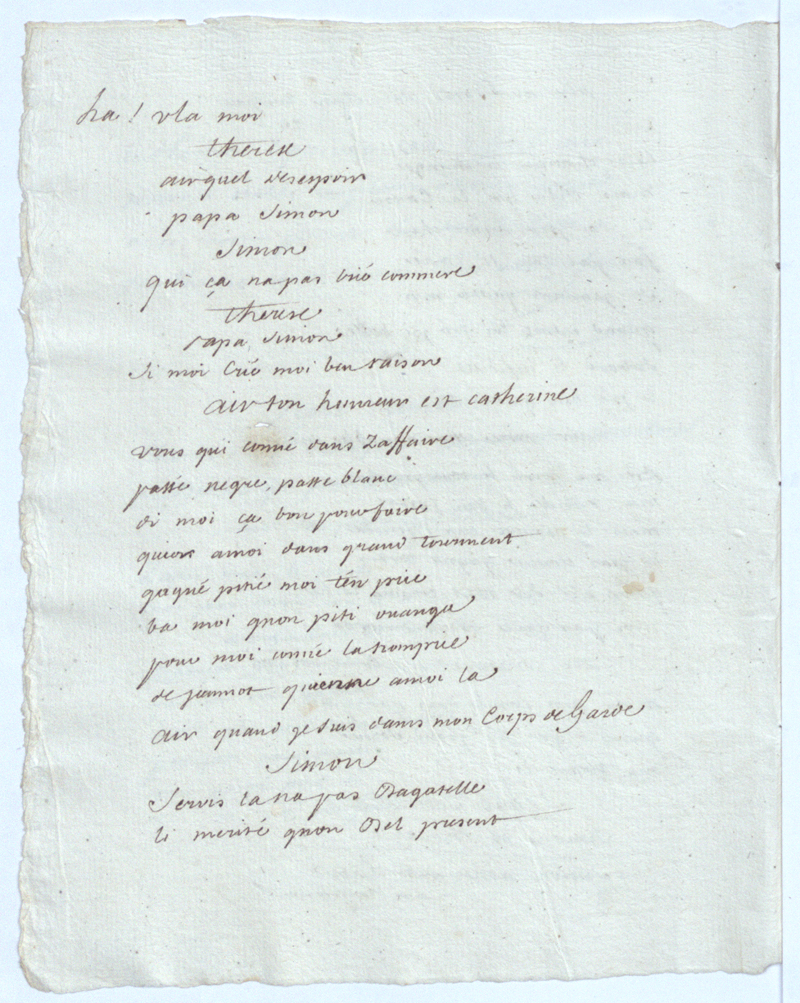 ha ! vla moi
therese
air quel desespoir
papa Simon
Simon
qui ça na pas crié commere
therese
papa Simon
Si moi Crié moi ben raison
air ton humeur est catherine
vous qui connié dans Zaffaire
passé negre, passé blanc
di moi ça bon pour faire
quiore amoi dans grand tourment
gagné pitié moi t'en prie
ba moi quon piti ouanga
pour moi connié la tromprie
de jeannot quiorre amoi la
air quand je suis dans mon Corps de Garde
Simon
Servis la na pas Bagatelle
li merité quon Bel present